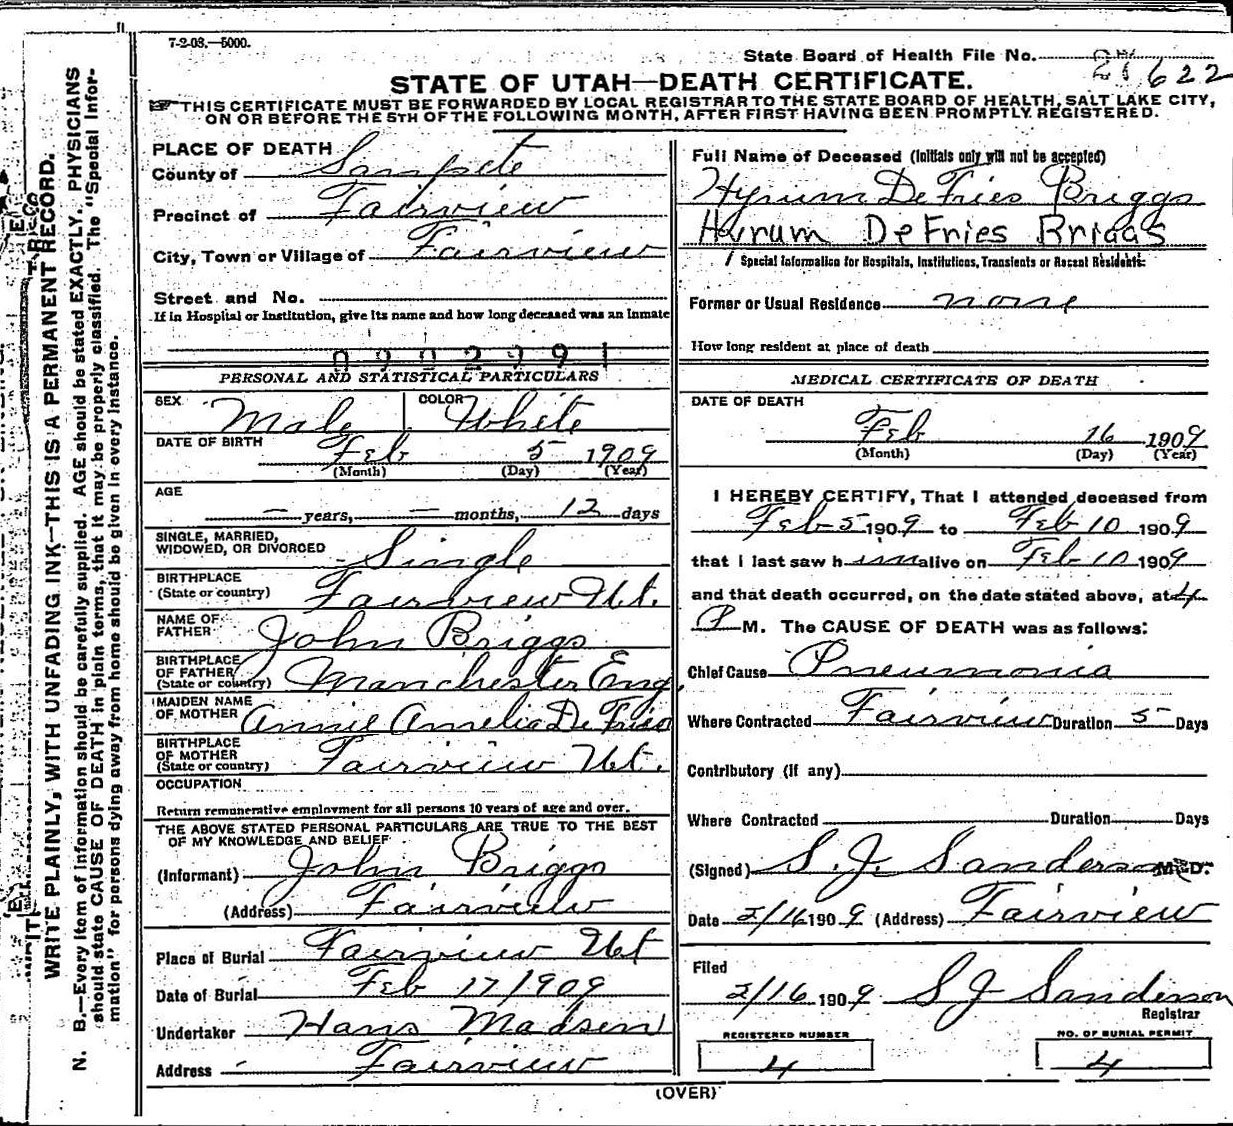 7-2-08.—5000.
State Board of Health File No. 622
STATE OF UTAH—DEATH CERTIFICATE.
THIS CERTIFICATE MUST BE FORWARDED BY LOCAL REGISTRAR TO THE STATE BOARD OF HEALTH, SALT LAKE CITY,
ON OR BEFORE THE 5TH OF THE FOLLOWING MONTH, AFTER FIRST HAVING BEEN PROMPTLY REGISTERED.
PLACE OF DEATH
County of Sanpete
Precinct of Fairview
City, Town or Village of Fairview
Street and No.
If in Hospital or Institution, give its name and how long deceased was an inmate
PERSONAL AND STATISTICAL PARTICULARS
SEX Male COLOR White
DATE OF BIRTH Feb 5 1909
(Month) (Day) (Year)
AGE
— years, — months, 12 days
SINGLE, MARRIED,
WIDOWED, OR DIVORCED Single
BIRTHPLACE
(State or country) Fairview Ut.
NAME OF
FATHER John Briggs
BIRTHPLACE
OF FATHER
(State or country) Manchester Eng.
MAIDEN NAME
OF MOTHER Annie Amelia DeFries
BIRTHPLACE
OF MOTHER
(State or country) Fairview Ut.
OCCUPATION
Return remunerative employment for all persons 10 years of age and over.
THE ABOVE STATED PERSONAL PARTICULARS ARE TRUE TO THE BEST
OF MY KNOWLEDGE AND BELIEF
(Informant) John Briggs
(Address) Fairview
Place of Burial Fairview Ut
Date of Burial Feb 17/1909
Undertaker Hans Madsen
Address Fairview
Full Name of Deceased (Initials only will not be accepted)
Hyrum DeFries Briggs
Hyrum DeFries Briggs
Special Information for Hospitals, Institutions, Transients or Recent Residents:
Former or Usual Residence none
How long resident at place of death
MEDICAL CERTIFICATE OF DEATH
DATE OF DEATH
Feb 16 1909
(Month) (Day) (Year)
I HEREBY CERTIFY, That I attended deceased from
Feb 5 1909 to Feb 10 1909
that I last saw him alive on Feb 10 1909
and that death occurred, on the date stated above, at 4
P M. The CAUSE OF DEATH was as follows:
Chief Cause Pneumonia
Where Contracted Fairview Duration 5 Days
Contributory (if any)
Where Contracted Duration Days
(Signed) S. J. Sanderson M.D.
Date 2/16 1909 (Address) Fairview
Filed
2/16 1909 S J Sanderson
Registrar
REGISTERED NUMBER
4
NO. OF BURIAL PERMIT
4
(OVER)
WRITE PLAINLY, WITH UNFADING INK—THIS IS A PERMANENT RECORD.
N. B.—Every item of information should be carefully supplied. AGE should be stated EXACTLY. PHYSICIANS
should state CAUSE OF DEATH in plain terms, that it may be properly classified. The "Special Infor-
mation" for persons dying away from home should be given in every instance.